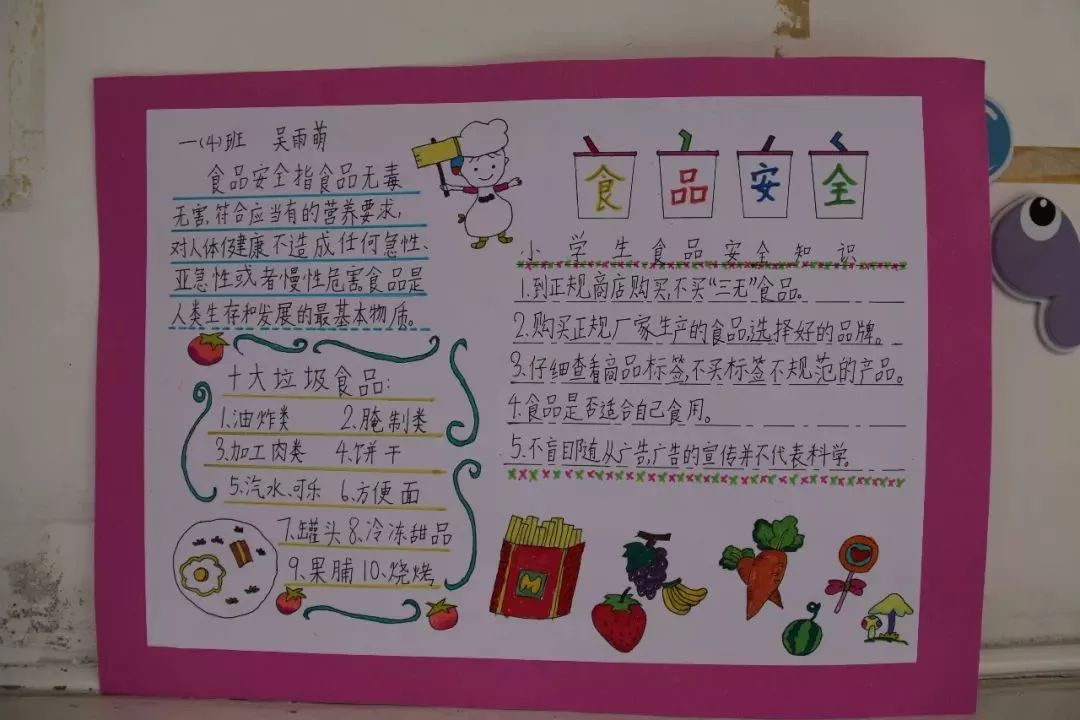 一(4)班 吴雨萌
食品安全指食品无毒
无害,符合应当有的营养要求,
对人体健康不造成任何急性、
亚急性或者慢性危害食品是
人类生存和发展的最基本物质。
十大垃圾食品:
1.油炸类 2.腌制类
3.加工肉类 4.饼干
5.汽水、可乐 6.方便面
7.罐头 8.冷冻甜品
9.果脯 10.烧烤
食品安全
小学生食品安全知识
1.到正规商店购买,不买“三无”食品。
2.购买正规厂家生产的食品,选择好的品牌。
3.仔细查看商品标签,不买标签不规范的产品。
4.食品是否适合自己食用。
5.不盲目随从广告,广告的宣传并不代表科学。
M